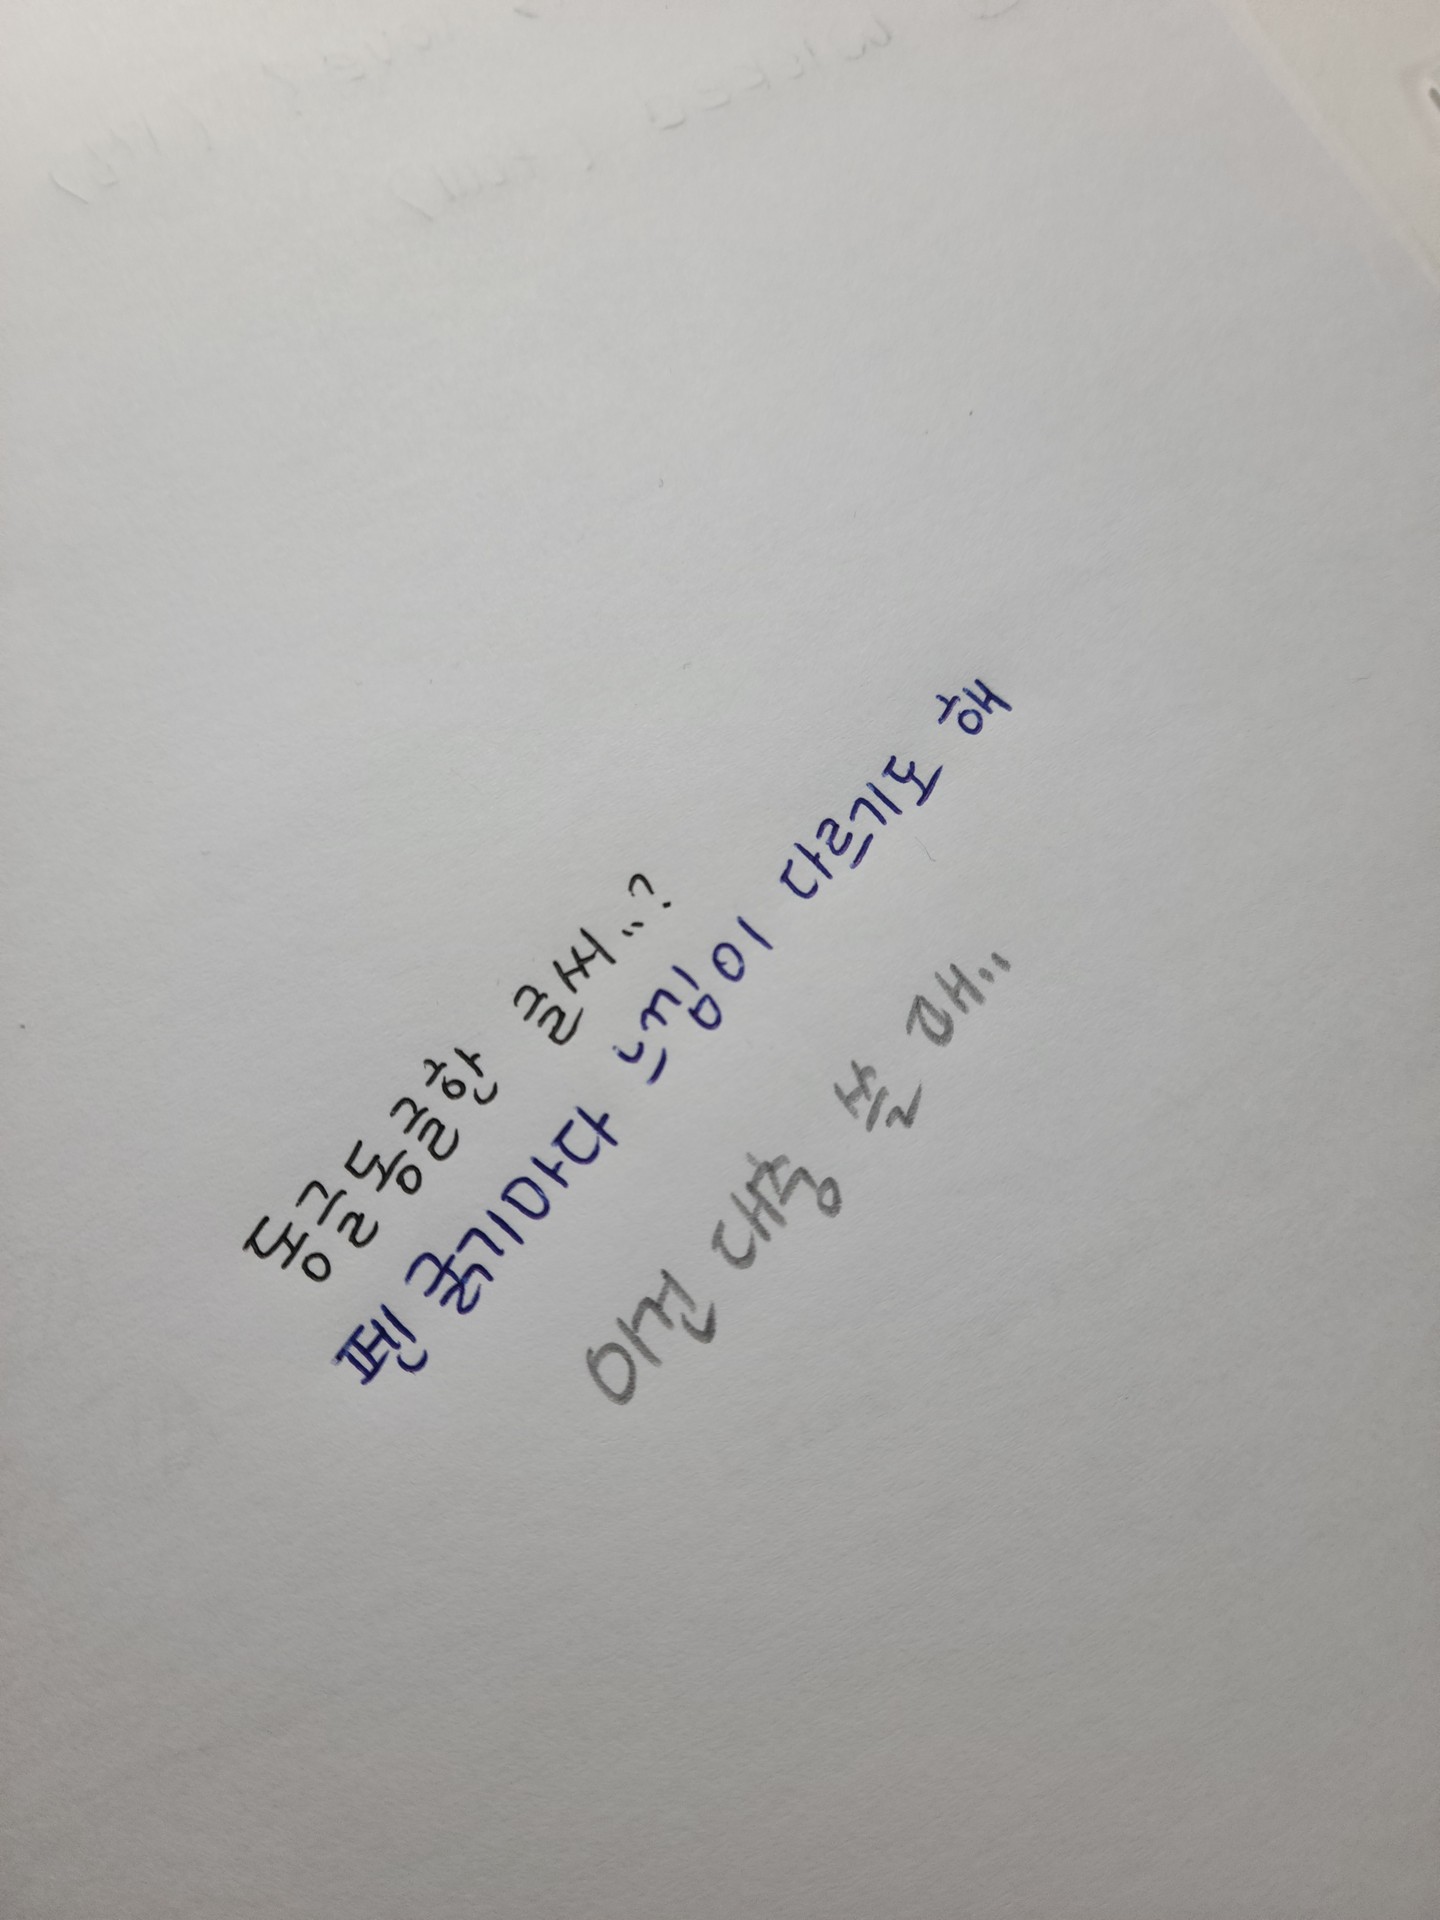 동글동글한 글씨..?
펜 굵기마다 느낌이 다르기도 해
이건 대충 쓸 때..